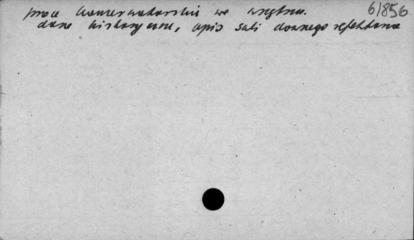 prace konserwatorskie we wnętrzu.
dane historyczne, opis sali dawnego refektarza
6/856